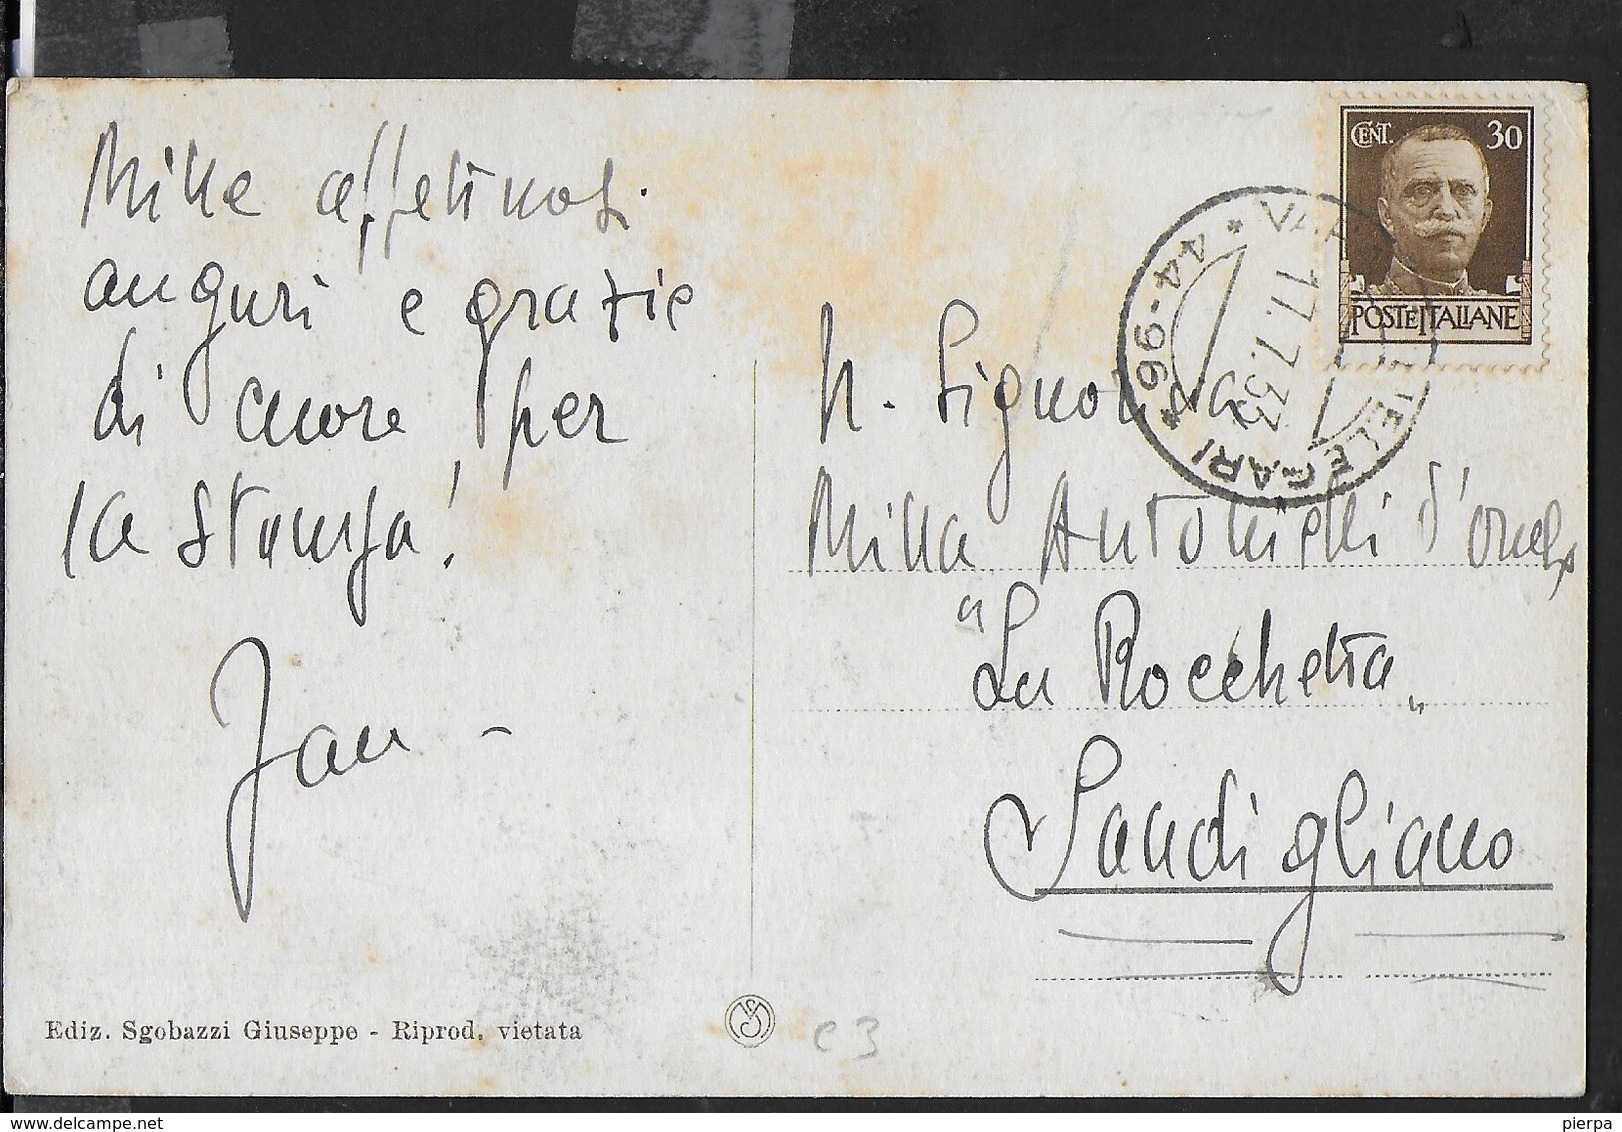 Mille affettuosi
auguri e grazie
di cuore per
la stanza!
Jan -
Ediz. Sgobazzi Giuseppe - Riprod. vietata
CENT. 30
POSTE ITALIANE
17.7.33
44-96
N. Signorina
Milla Antonielli d'Oulx
"La Rocchetta"
Sandigliano
c3
pierpa